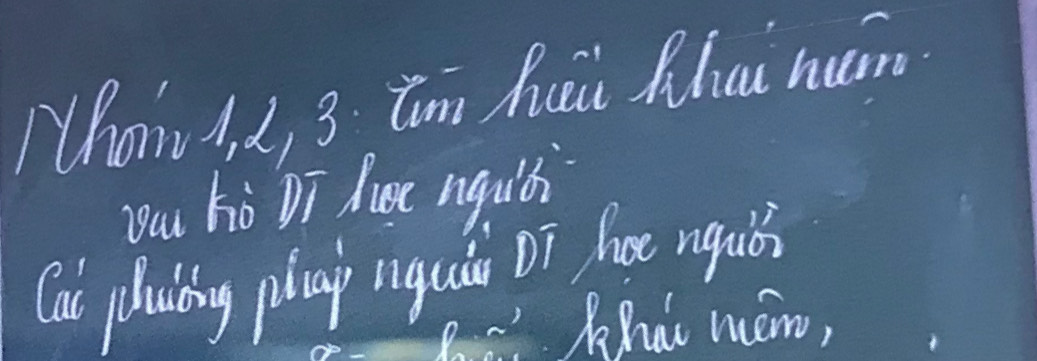 Nhóm 1, 2, 3: Tìm hiểu khái niệm
vai trò DT học người
Các phương pháp nguời DT học người
hiểu khái niệm,